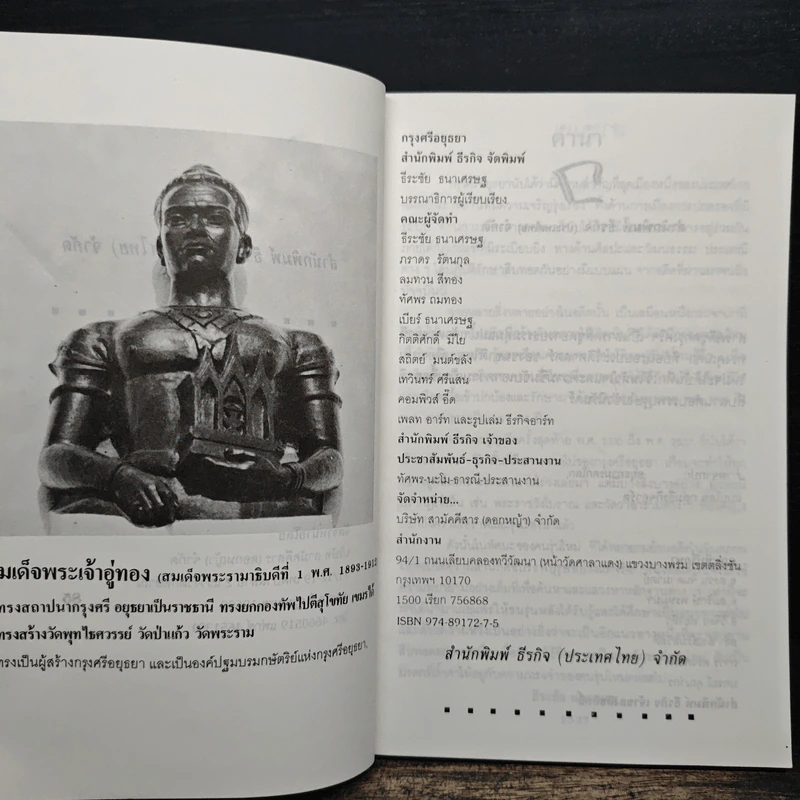 สมเด็จพระเจ้าอู่ทอง (สมเด็จพระรามาธิบดีที่ 1 พ.ศ. 1893-1912
ทรงสถาปนากรุงศรี อยุธยาเป็นราชธานี ทรงยกกองทัพไปตีสุโขทัย เขมรได้
ทรงสร้างวัดพุทไธศวรรย์ วัดป่าแก้ว วัดพระราม
ทรงเป็นผู้สร้างกรุงศรีอยุธยา และเป็นองค์ปฐมบรมกษัตริย์แห่งกรุงศรีอยุธยา.
กรุงศรีอยุธยา
สำนักพิมพ์ ธีรกิจ จัดพิมพ์
ธีระชัย ธนาเศรษฐ
บรรณาธิการผู้เรียบเรียง
คณะผู้จัดทำ
ธีระชัย ธนาเศรษฐ
ภราดร รัตนกุล
ลมทวน สีทอง
ทัศพร ถมทอง
เบียร์ ธนาเศรษฐ
กิตติศักดิ์ มีไย
สถิตย์ มนต์ขลัง
เทวินทร์ ศรีแสน
คอมพิวส์ อี๊ด
เพลท อาร์ท และรูปเล่ม ธีรกิจอาร์ท
สำนักพิมพ์ ธีรกิจ เจ้าของ
ประชาสัมพันธ์-ธุรกิจ-ประสานงาน
ทัศพร-นะโม-ธารณี-ประสานงาน
จัดจำหน่าย...
บริษัท สามัคคีสาร (ดอกหญ้า) จำกัด
สำนักงาน
94/1 ถนนเลียบคลองทวีวัฒนา (หน้าวัดศาลาแดง) แขวงบางพรม เขตตลิ่งชัน
กรุงเทพฯ 10170
1500 เรียก 756868
ISBN 974-89172-7-5
สำนักพิมพ์ ธีรกิจ (ประเทศไทย) จำกัด